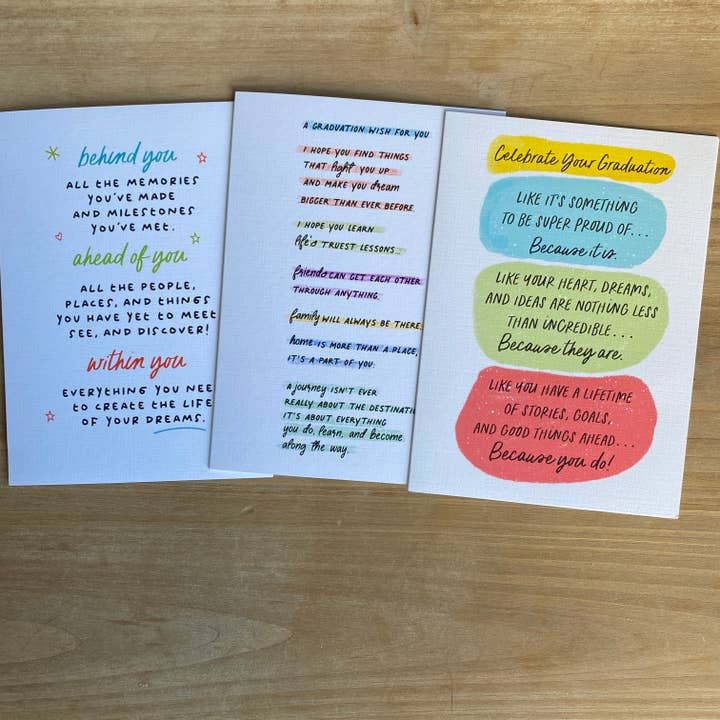 behind you
ALL THE MEMORIES
YOU'VE MADE
AND MILESTONES
YOU'VE MET.
ahead of you
ALL THE PEOPLE,
PLACES, AND THINGS
YOU HAVE YET TO MEET
SEE, AND DISCOVER!
within you
EVERYTHING YOU NEE
TO CREATE THE LIFE
OF YOUR DREAMS.
A GRADUATION WISH FOR YOU
I HOPE YOU FIND THINGS
THAT light YOU UP...
AND MAKE YOU dream
BIGGER THAN EVER BEFORE.
I HOPE YOU LEARN
life's TRUEST LESSONS...
friends CAN GET EACH OTHER
THROUGH ANYTHING.
family WILL ALWAYS BE THERE.
home IS MORE THAN A PLACE,
IT'S A PART OF YOU.
a journey ISN'T EVER
REALLY ABOUT THE DESTINATI
IT'S ABOUT EVERYTHING
you do, learn, and become
along the way.
Celebrate Your Graduation
LIKE IT'S SOMETHING
TO BE SUPER PROUD OF...
Because it is.
LIKE YOUR HEART, DREAMS,
AND IDEAS ARE NOTHING LESS
THAN INCREDIBLE...
Because they are.
LIKE YOU HAVE A LIFETIME
OF STORIES, GOALS,
AND GOOD THINGS AHEAD...
Because you do!